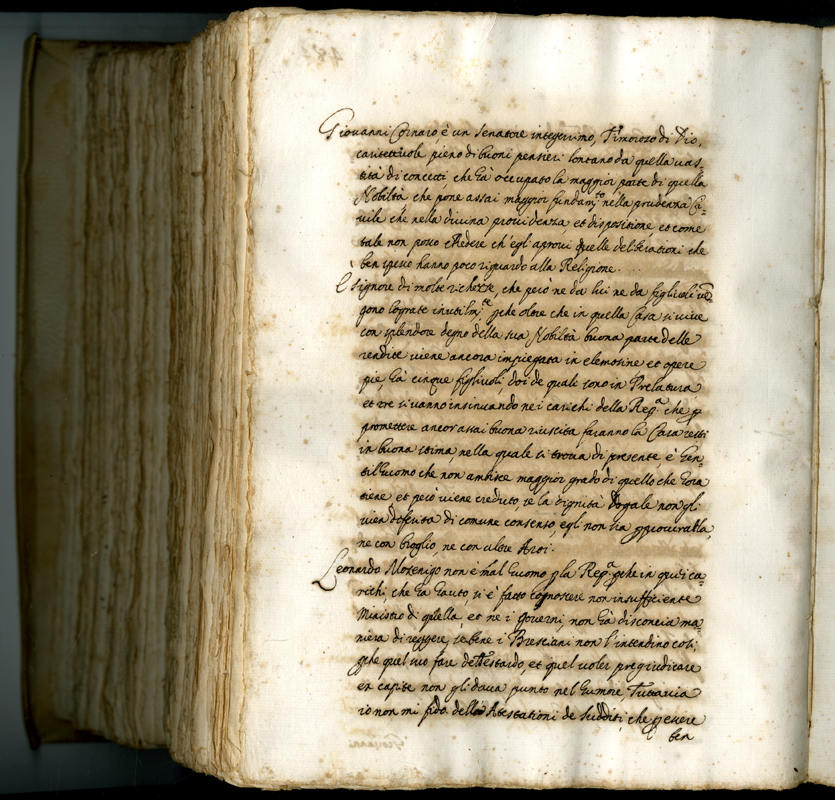 Giovanni Cornaro è un Senatore integerrimo, Timoroso di Dio,
caritettivole pieno di buoni pensieri lontano da quella vas
tità di concetti, che hà occupato la maggior parte di quella
Nobiltà che pone assai maggior fundam.to nella prudenza Ci=
vile che nella divina providenza, et disposizione, et come
tale non posso credere ch'egli aprovi quelle deliberationi che
ben spesso hanno poco riguardo alla Religione.
È signore di molte richezze, che però ne da lui ne da figlivoli ven
gono lograte inutilm.te perche oltre che in quella Casa si vive
con splendore degno della sua Nobiltà buona parte delle
rendite viene ancora impiegata in elemosine et opere
pie, hà cinque figlivoli, doi de quali sono in Prelatura
et tre si vanno insinuando ne i carichi della Rep.a che per
promettere ancor assai buona riuscita faranno la Casa resti
in buona stima, nella quale si trova di presente, è Gen=
til'huomo che non ambisce maggior grado di quello che hora
tiene et però viene creduto, se la dignità Dogale non gli
vien di comune consenso, egli non sia per procurarla,
ne con broglio, ne con altre Arti.
Leonardo Mozenigo non è mal huomo per la Rep.a perche in quei ca=
richi che hà hauto, si è fatto cognoscere non insufficiente
Ministro di quella, et ne i governi non hà disconcia ma=
niera di reggere, se bene i Bresciani non l'intendino così,
perche quel suo fare del Testardo, et quel voler pregiudicare
en capite non gli dava punto nel humore, Tuttavia
io non mi fido delle Atestationi de sudditi, che per essere
ben
Giovanni